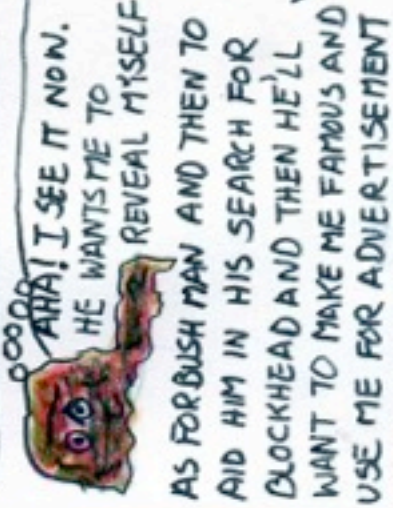 AHA! I SEE IT NOW.
HE WANTS ME TO
REVEAL MYSELF
AS FORBUSH MAN AND THEN TO
AID HIM IN HIS SEARCH FOR
BLOCKHEAD AND THEN HE'LL
WANT TO MAKE ME FAMOUS AND
USE ME FOR ADVERTISEMENT